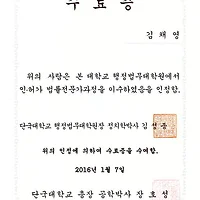 수 료 증
김 채 영
위의 사람은 본 대학교 행정법무대학원에서
인·허가 법률전문가과정을 이수하였음을 인정함.
단국대학교 행정법무대학원장 정치학박사 김 성 중
위의 인정에 의하여 수료증을 수여함.
2016년 1월 7일
단국대학교 총장 공학박사 장 호 성